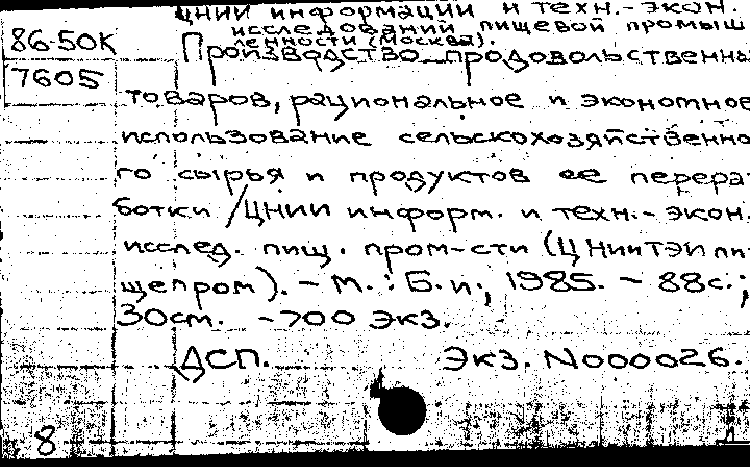 ЦНИИ информации и техн.-экон.
исследований пищевой промыш
ленности (Москва).
86-50К
Производство продовольственны
7605
товаров, рациональное и экономное
использование сельскохозяйственно
го сырья и продуктов ее перера-
ботки / ЦНИИ информ. и техн.-экон.
исслед. пищ. пром-сти (ЦНИИТЭИпи-
щепром). - М. : Б.и., 1985. - 88с.;
30см. - 700 экз.
ДСП. Экз. N000026.
8